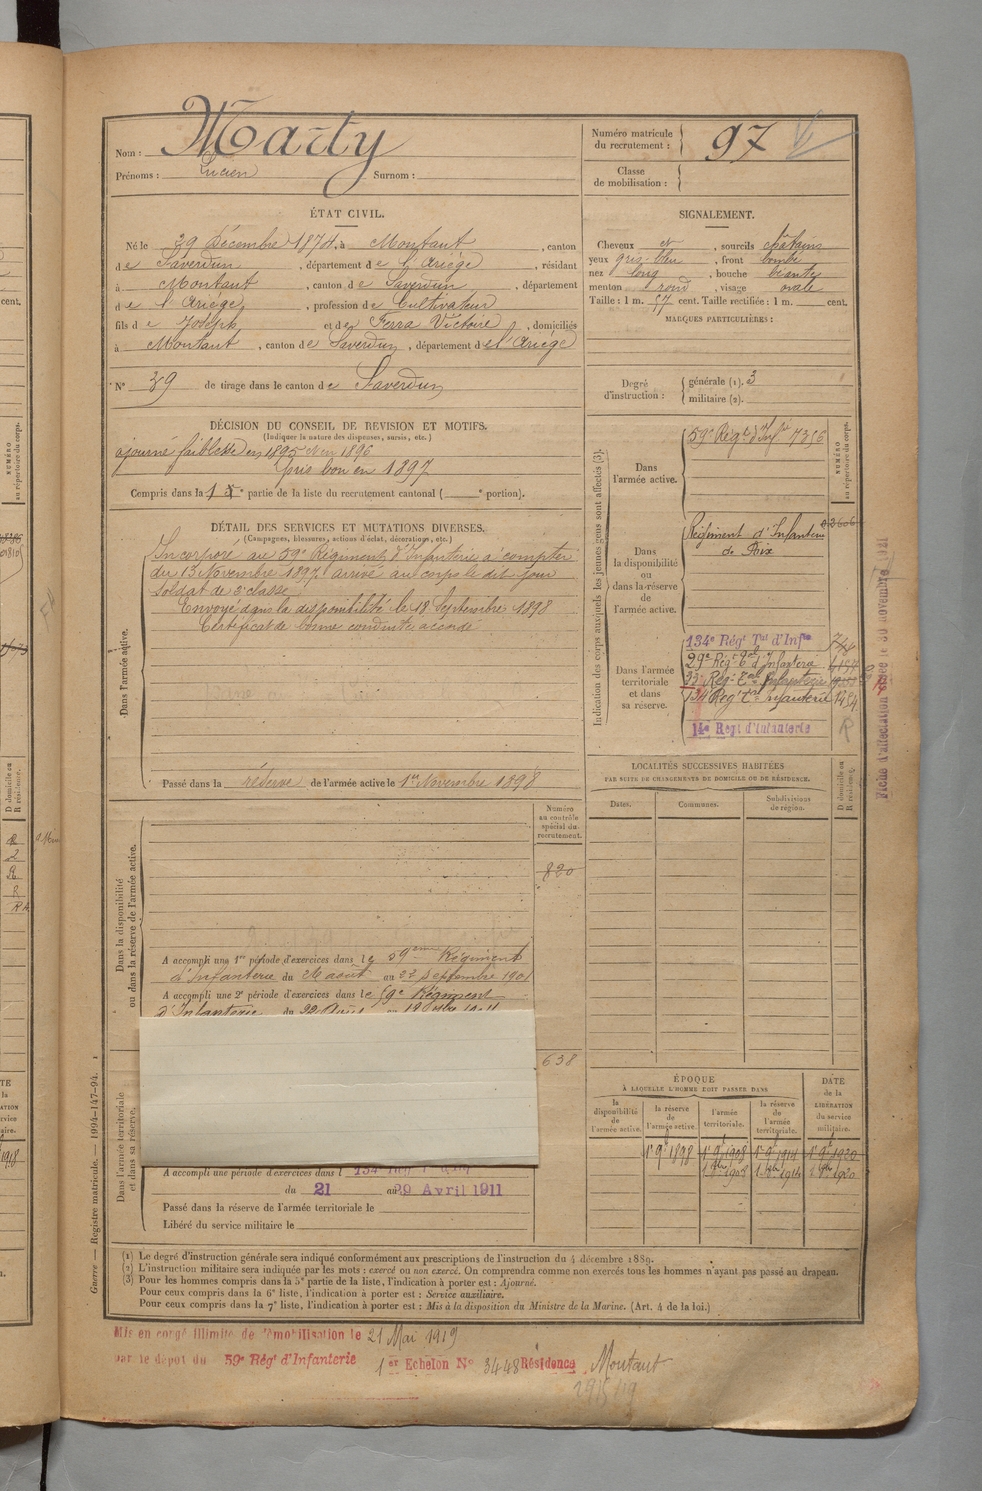 Nom : Marty
Prénoms : Lucien Surnom :
Numéro matricule du recrutement : 97
Classe de mobilisation :
ÉTAT CIVIL.
Né le 29 Décembre 1874, à Montaut, canton
de Saverdun, département de l'Ariége, résidant
à Montaut, canton de Saverdun, département
de l'Ariége, profession de Cultivateur
fils de Joseph et de Ferra Victoire, domiciliés
à Montaut, canton de Saverdun, département de l'Ariége
N° 39 de tirage dans le canton de Saverdun
SIGNALEMENT.
Cheveux et, sourcils châtains
yeux gris-bleu, front bombé
nez long, bouche béante
menton rond, visage ovale
Taille : 1 m. 57 cent. Taille rectifiée : 1 m. cent.
MARQUES PARTICULIÈRES :
Degré d'instruction : générale (1). 3
militaire (2).
DÉCISION DU CONSEIL DE REVISION ET MOTIFS.
(Indiquer la nature des dispenses, sursis, etc.)
ajourné faiblesse en 1895 et en 1896
Pris bon en 1897
Compris dans la partie de la liste du recrutement cantonal ( e portion).
DÉTAIL DES SERVICES ET MUTATIONS DIVERSES.
(Campagnes, blessures, actions d'éclat, décorations, etc.)
Dans l'armée active.
Incorporé au 59e Régiment d'Infanterie à compter
du 13 Novembre 1897, arrivé au corps le dit jour
soldat de 2e classe
Envoyé dans la disponibilité le 18 Septembre 1898
Certificat de bonne conduite accordé
Passé dans la réserve de l'armée active le 1er Novembre 1898
Indication des corps auxquels les jeunes gens sont affectés (3).
NUMÉRO au répertoire du corps.
Dans l'armée active.
59e Régt d'Infie 7356
Dans la disponibilité ou dans la réserve de l'armée active.
Régiment d'Infanterie
de Foix
Dans l'armée territoriale et dans sa réserve.
134e Régt Tal d'Infie
29e Rég. Tal d'Infanterie
134 Régt Tal Infanterie
14e Regt d'Infanterie R
LOCALITÉS SUCCESSIVES HABITÉES
PAR SUITE DE CHANGEMENTS DE DOMICILE OU DE RÉSIDENCE.
D domicile ou R résidence.
Dates. Communes. Subdivisions de région.
Numéro au contrôle spécial du recrutement.
820
Dans la disponibilité ou dans la réserve de l'armée active.
A accompli une 1re période d'exercices dans le 59eme Régiment
d'Infanterie du 26 août au 22 Septembre 1901
A accompli une 2e période d'exercices dans le 59e Régiment
638
Dans l'armée territoriale et dans sa réserve.
A accompli une période d'exercices dans l 134e
du 21 au 29 Avril 1911
Passé dans la réserve de l'armée territoriale le
Libéré du service militaire le
ÉPOQUE
À LAQUELLE L'HOMME DOIT PASSER DANS
la disponibilité de l'armée active. la réserve de l'armée active. l'armée territoriale. la réserve de l'armée territoriale.
DATE de la LIBÉRATION du service militaire.
1er 9bre 1898 1er 9bre 1908 1er 9bre 1914 1er 9bre 1920
Guerre. — Registre matricule. — 1994-147-94.
(1) Le degré d'instruction générale sera indiqué conformément aux prescriptions de l'instruction du 4 décembre 1889.
(2) L'instruction militaire sera indiquée par les mots : exercé ou non exercé. On comprendra comme non exercés tous les hommes n'ayant pas passé au drapeau.
(3) Pour les hommes compris dans la 5e partie de la liste, l'indication à porter est : Ajourné.
Pour ceux compris dans la 6e liste, l'indication à porter est : Service auxiliaire.
Pour ceux compris dans la 7e liste, l'indication à porter est : Mis à la disposition du Ministre de la Marine. (Art. 4 de la loi.)
Mis en congé illimité de démobilisation le 21 Mai 1919
par le dépot du 59e Régt d'Infanterie 1er Echelon N° 3448 Résidence Montaut